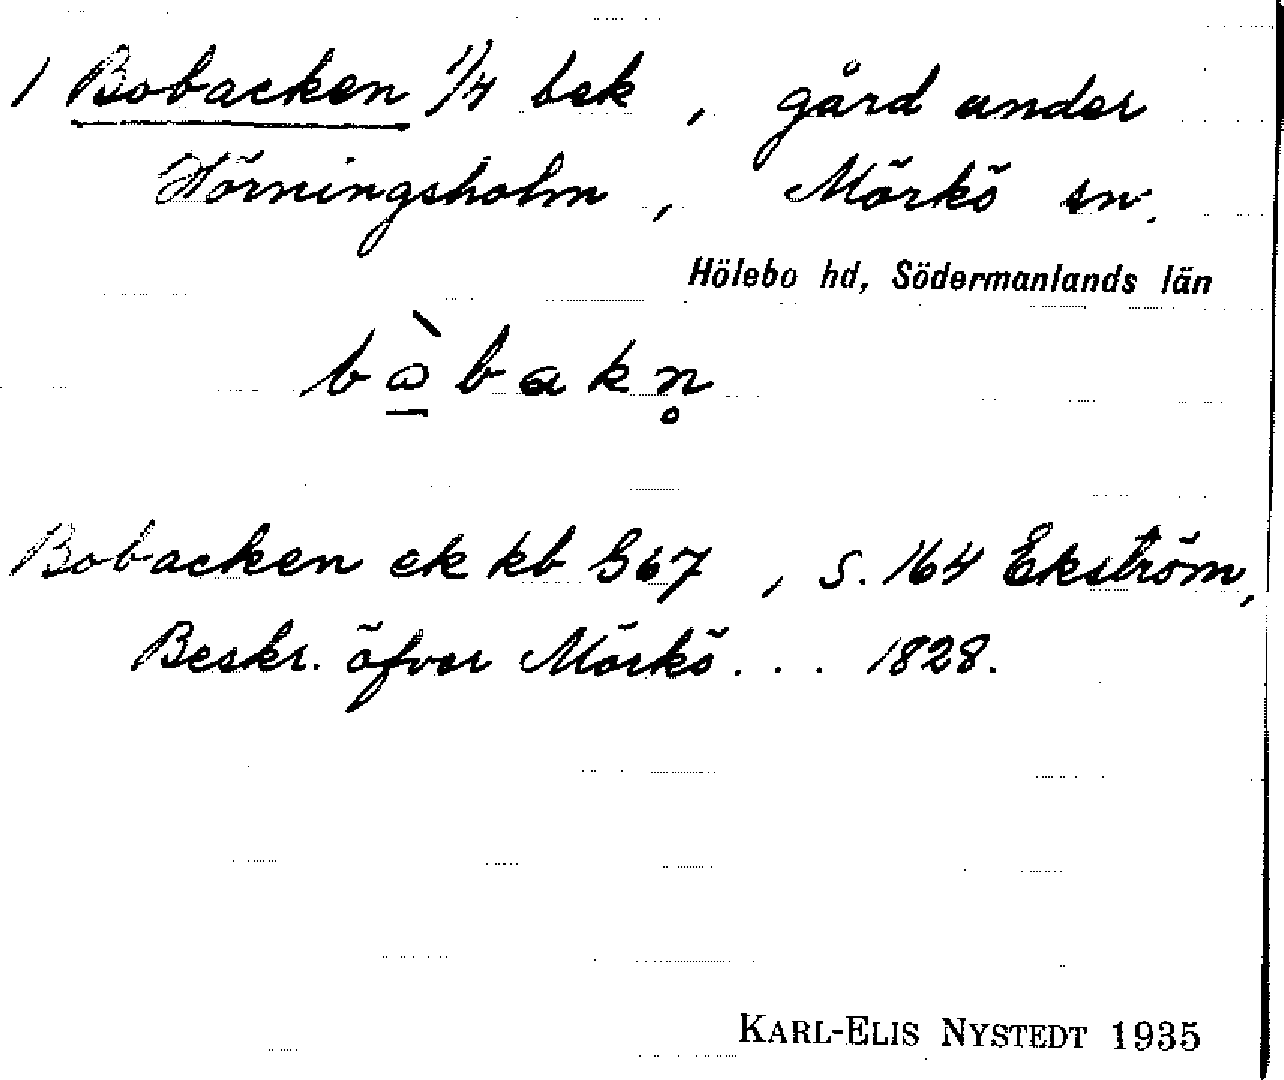 1 Bobacken 1/4 bek, gård under
Hörningsholm, Mörkö sn.
Hölebo hd, Södermanlands län
bò̱bakn̥
Bobacken ek kb G67, S. 164 Ekström,
Beskr. öfver Mörkö... 1828.
KARL-ELIS NYSTEDT 1935